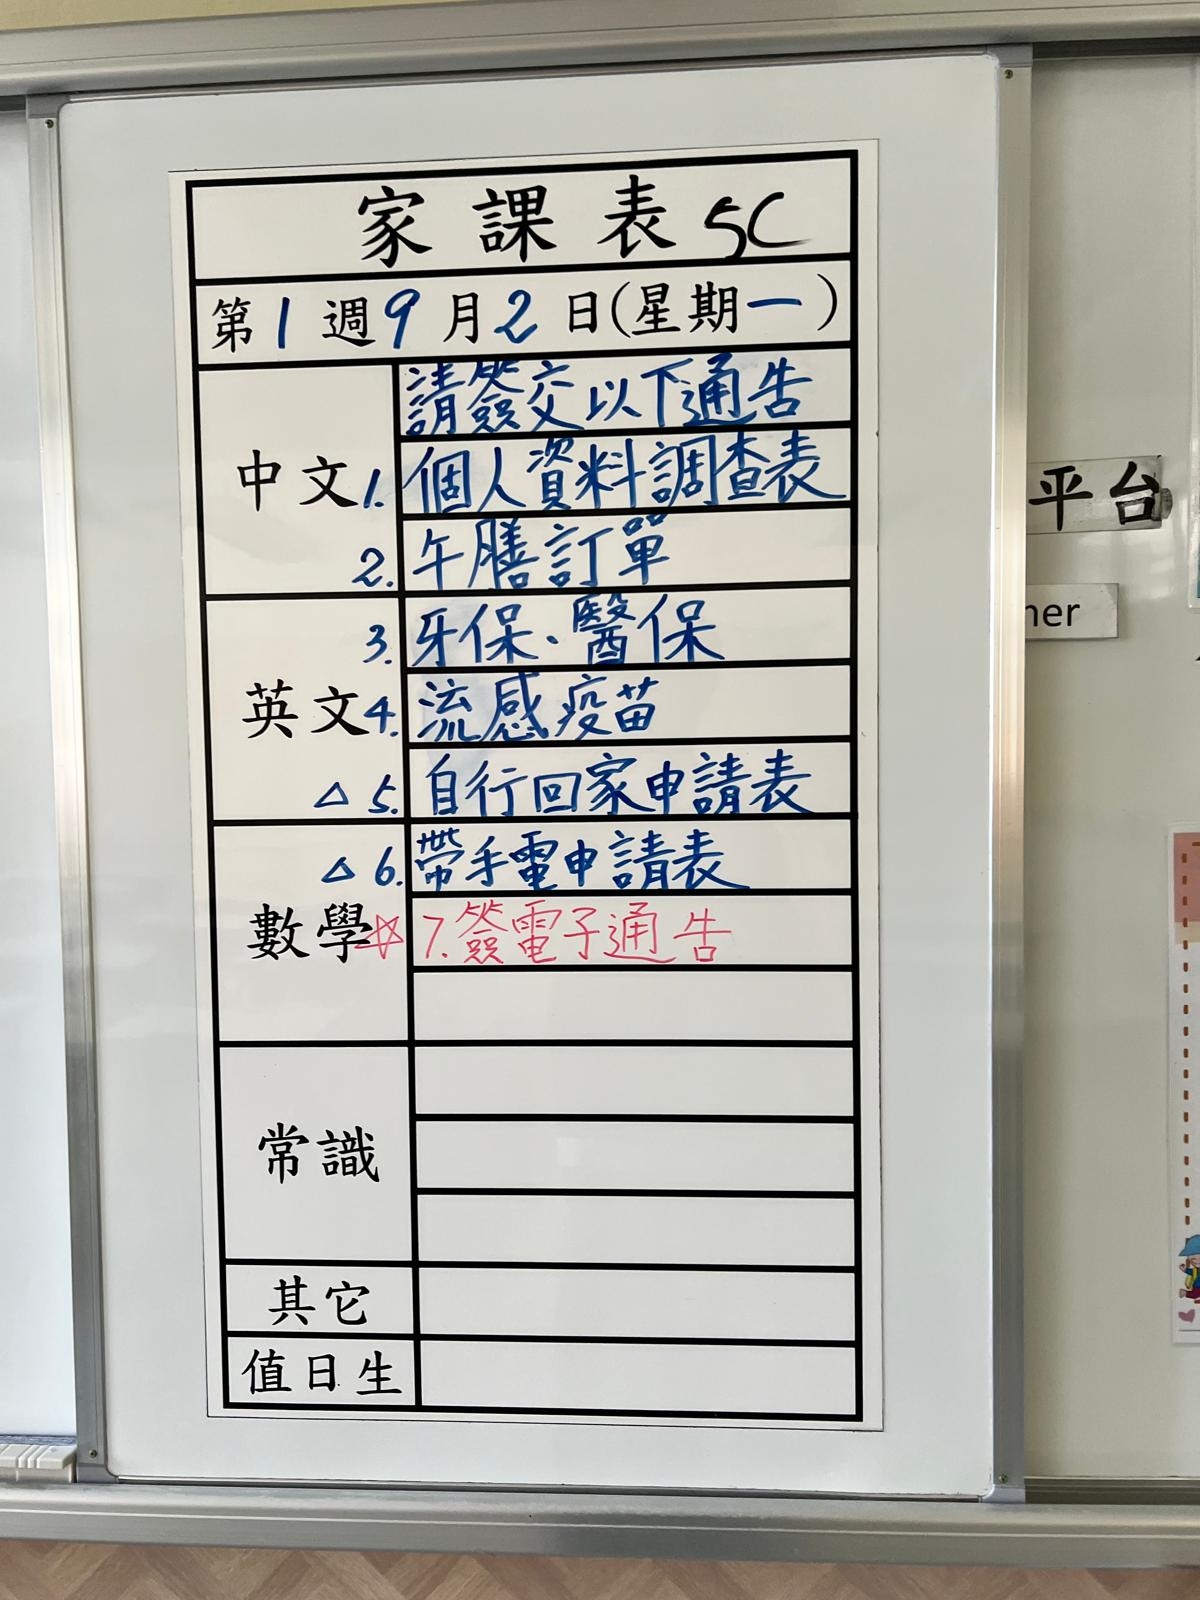 家課表 5C
第1週9月2日(星期一)
請簽交以下通告
中文 1. 個人資料調查表
2. 午膳訂單
3. 牙保、醫保
英文 4. 流感疫苗
△ 5. 自行回家申請表
△ 6. 帶手電申請表
數學 ☆ 7. 簽電子通告
常識
其它
值日生
平台
ner